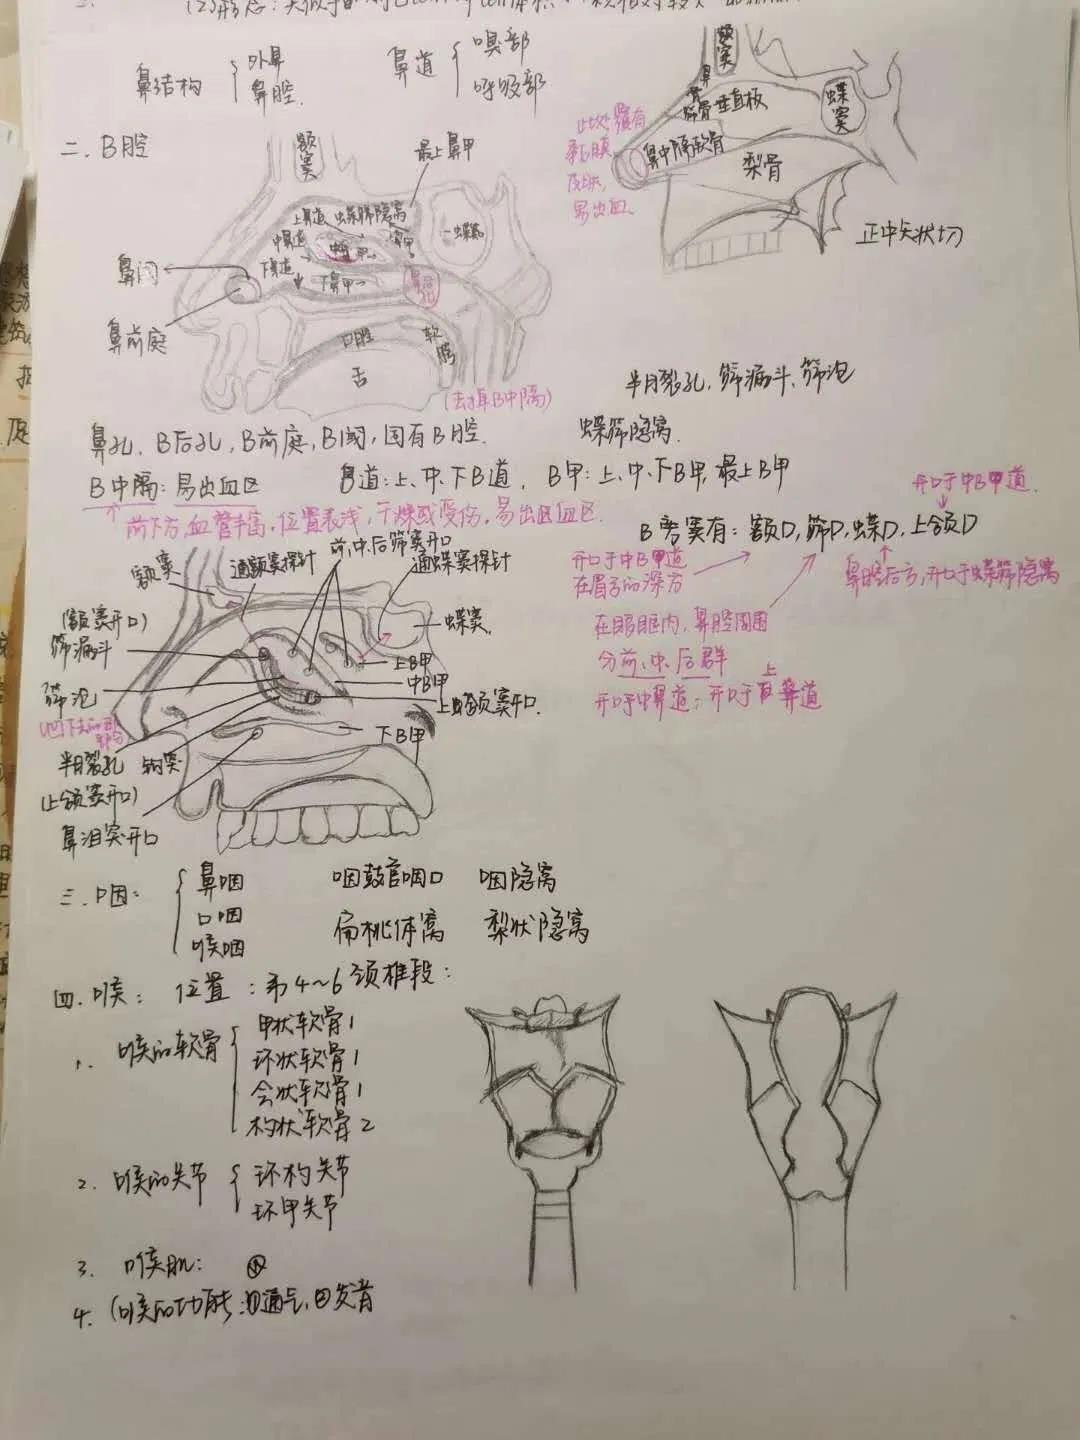 (2)形态:
鼻结构 外鼻 鼻腔.
鼻道 嗅部 呼吸部
额窦
鼻骨
筛骨垂直板
蝶窦
鼻中隔软骨
犁骨
正中矢状切
此处覆有
易出血.
二. B腔
额窦
最上鼻甲
上鼻道 蝶筛隐窝
中鼻道
下鼻道
下鼻甲
蝶窦
鼻阈
鼻前庭
口腔
舌
软腭
(去掉B中隔)
半月裂孔, 筛漏斗、筛泡
蝶筛隐窝.
鼻孔, B后孔, B前庭, B阈, 固有B腔.
B中隔: 易出血区
鼻道: 上、中、下B道, B甲: 上、中、下B甲, 最上B甲
前下方, 血管丰富, 位置表浅, 干燥或受伤, 易出血区.
开口于中B道.
B旁窦有: 额D, 筛D, 蝶D, 上颌D
开口于中B道
在眉弓的深方
鼻腔后方, 开口于蝶筛隐窝
在眼眶内, 鼻腔周围
分前、中、后群
开口于中鼻道; 开口于上鼻道
额窦
通额窦探针
前、中、后筛窦开口
通蝶窦探针
(额窦开口)
筛漏斗
蝶窦.
上B甲
中B甲
筛泡
上颌窦开口.
下B甲
半月裂孔 钩突
(上颌窦开口)
鼻泪管开口
三. 咽:
鼻咽
口咽
喉咽
咽鼓管咽口 咽隐窝
扁桃体窝 梨状隐窝
四. 喉: 位置: 第4~6颈椎段:
1. 喉的软骨
甲状软骨1
环状软骨1
会状软骨1
杓状软骨2
2. 喉的关节
环杓关节
环甲关节
3. 喉肌:
4. 喉的功能: ①通气, ②发音